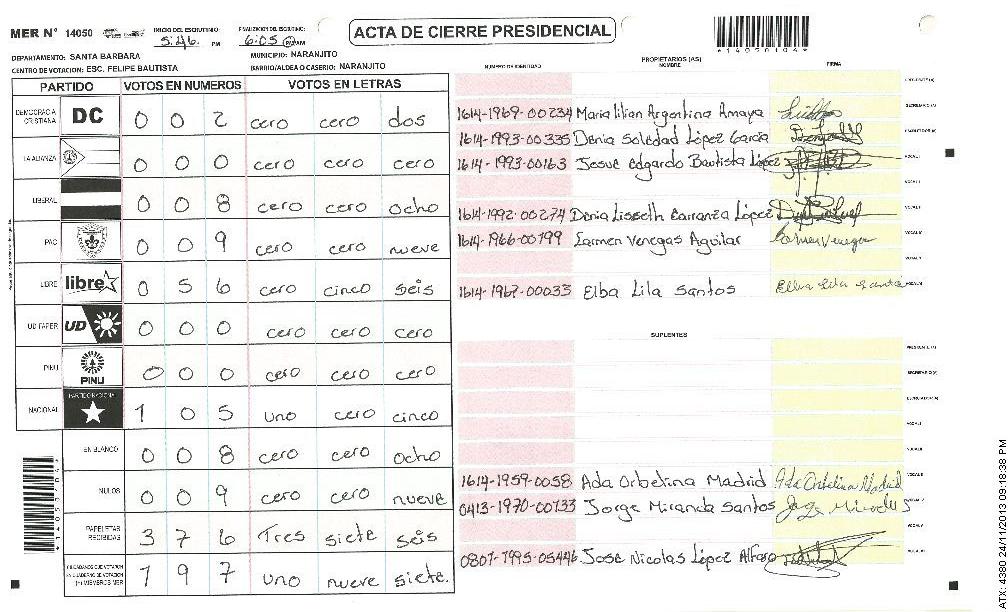 MER N° 14050
INICIO DEL ESCRUTINIO: 5:46 PM
FINALIZACION DEL ESCRUTINIO: 6:05 PM
ACTA DE CIERRE PRESIDENCIAL
DEPARTAMENTO: SANTA BARBARA
MUNICIPIO: NARANJITO
CENTRO DE VOTACION: ESC. FELIPE BAUTISTA
BARRIO/ALDEA O CASERIO: NARANJITO
PARTIDO VOTOS EN NUMEROS VOTOS EN LETRAS
DEMOCRACIA CRISTIANA DC 0 0 2 cero cero dos
LA ALIANZA 0 0 0 cero cero cero
LIBERAL 0 0 8 cero cero ocho
PAC 0 0 9 cero cero nueve
LIBRE libre 0 5 6 cero cinco seis
UD FAPER UD 0 0 0 cero cero cero
PINU PINU 0 0 0 cero cero cero
NACIONAL PARTIDO NACIONAL 1 0 5 uno cero cinco
EN BLANCO 0 0 8 cero cero ocho
NULOS 0 0 9 cero cero nueve
PAPELETAS RECIBIDAS 3 7 6 Tres siete seis
CIUDADANOS QUE VOTARON EN CUADERNO DE VOTACION (+) MIEMBROS MER 1 9 7 uno nueve siete.
PROPIETARIOS (AS)
NUMERO DE IDENTIDAD NOMBRE FIRMA
PRESIDENTE (A)
1614-1969-00234 Maria Lilian Argentina Amaya SECRETARIO (A)
1614-1993-00335 Denia Soledad López Garcia ESCRUTADOR (A)
1614-1993-00163 Josue Edgardo Bautista López VOCAL I
1614-1992-00274 Denia Lisseth Carranza López
1614-1966-00199 Carmen Venegas Aguilar Carmen Venegas
1614-1967-00033 Elba Lila Santos Elba Lila Santos
SUPLENTES
PRESIDENTE (A)
SECRETARIO (A)
ESCRUTADOR (A)
VOCAL I
1614-1959-0058 Ada Orbelina Madrid Ada Orbelina Madrid
0413-1970-00133 Jorge Miranda Santos
0801-1995-05446 Jose Nicolas López Alfaro
*14050104*
*14050104*
ATX: 4380 24/11/2013 09:18:38 PM